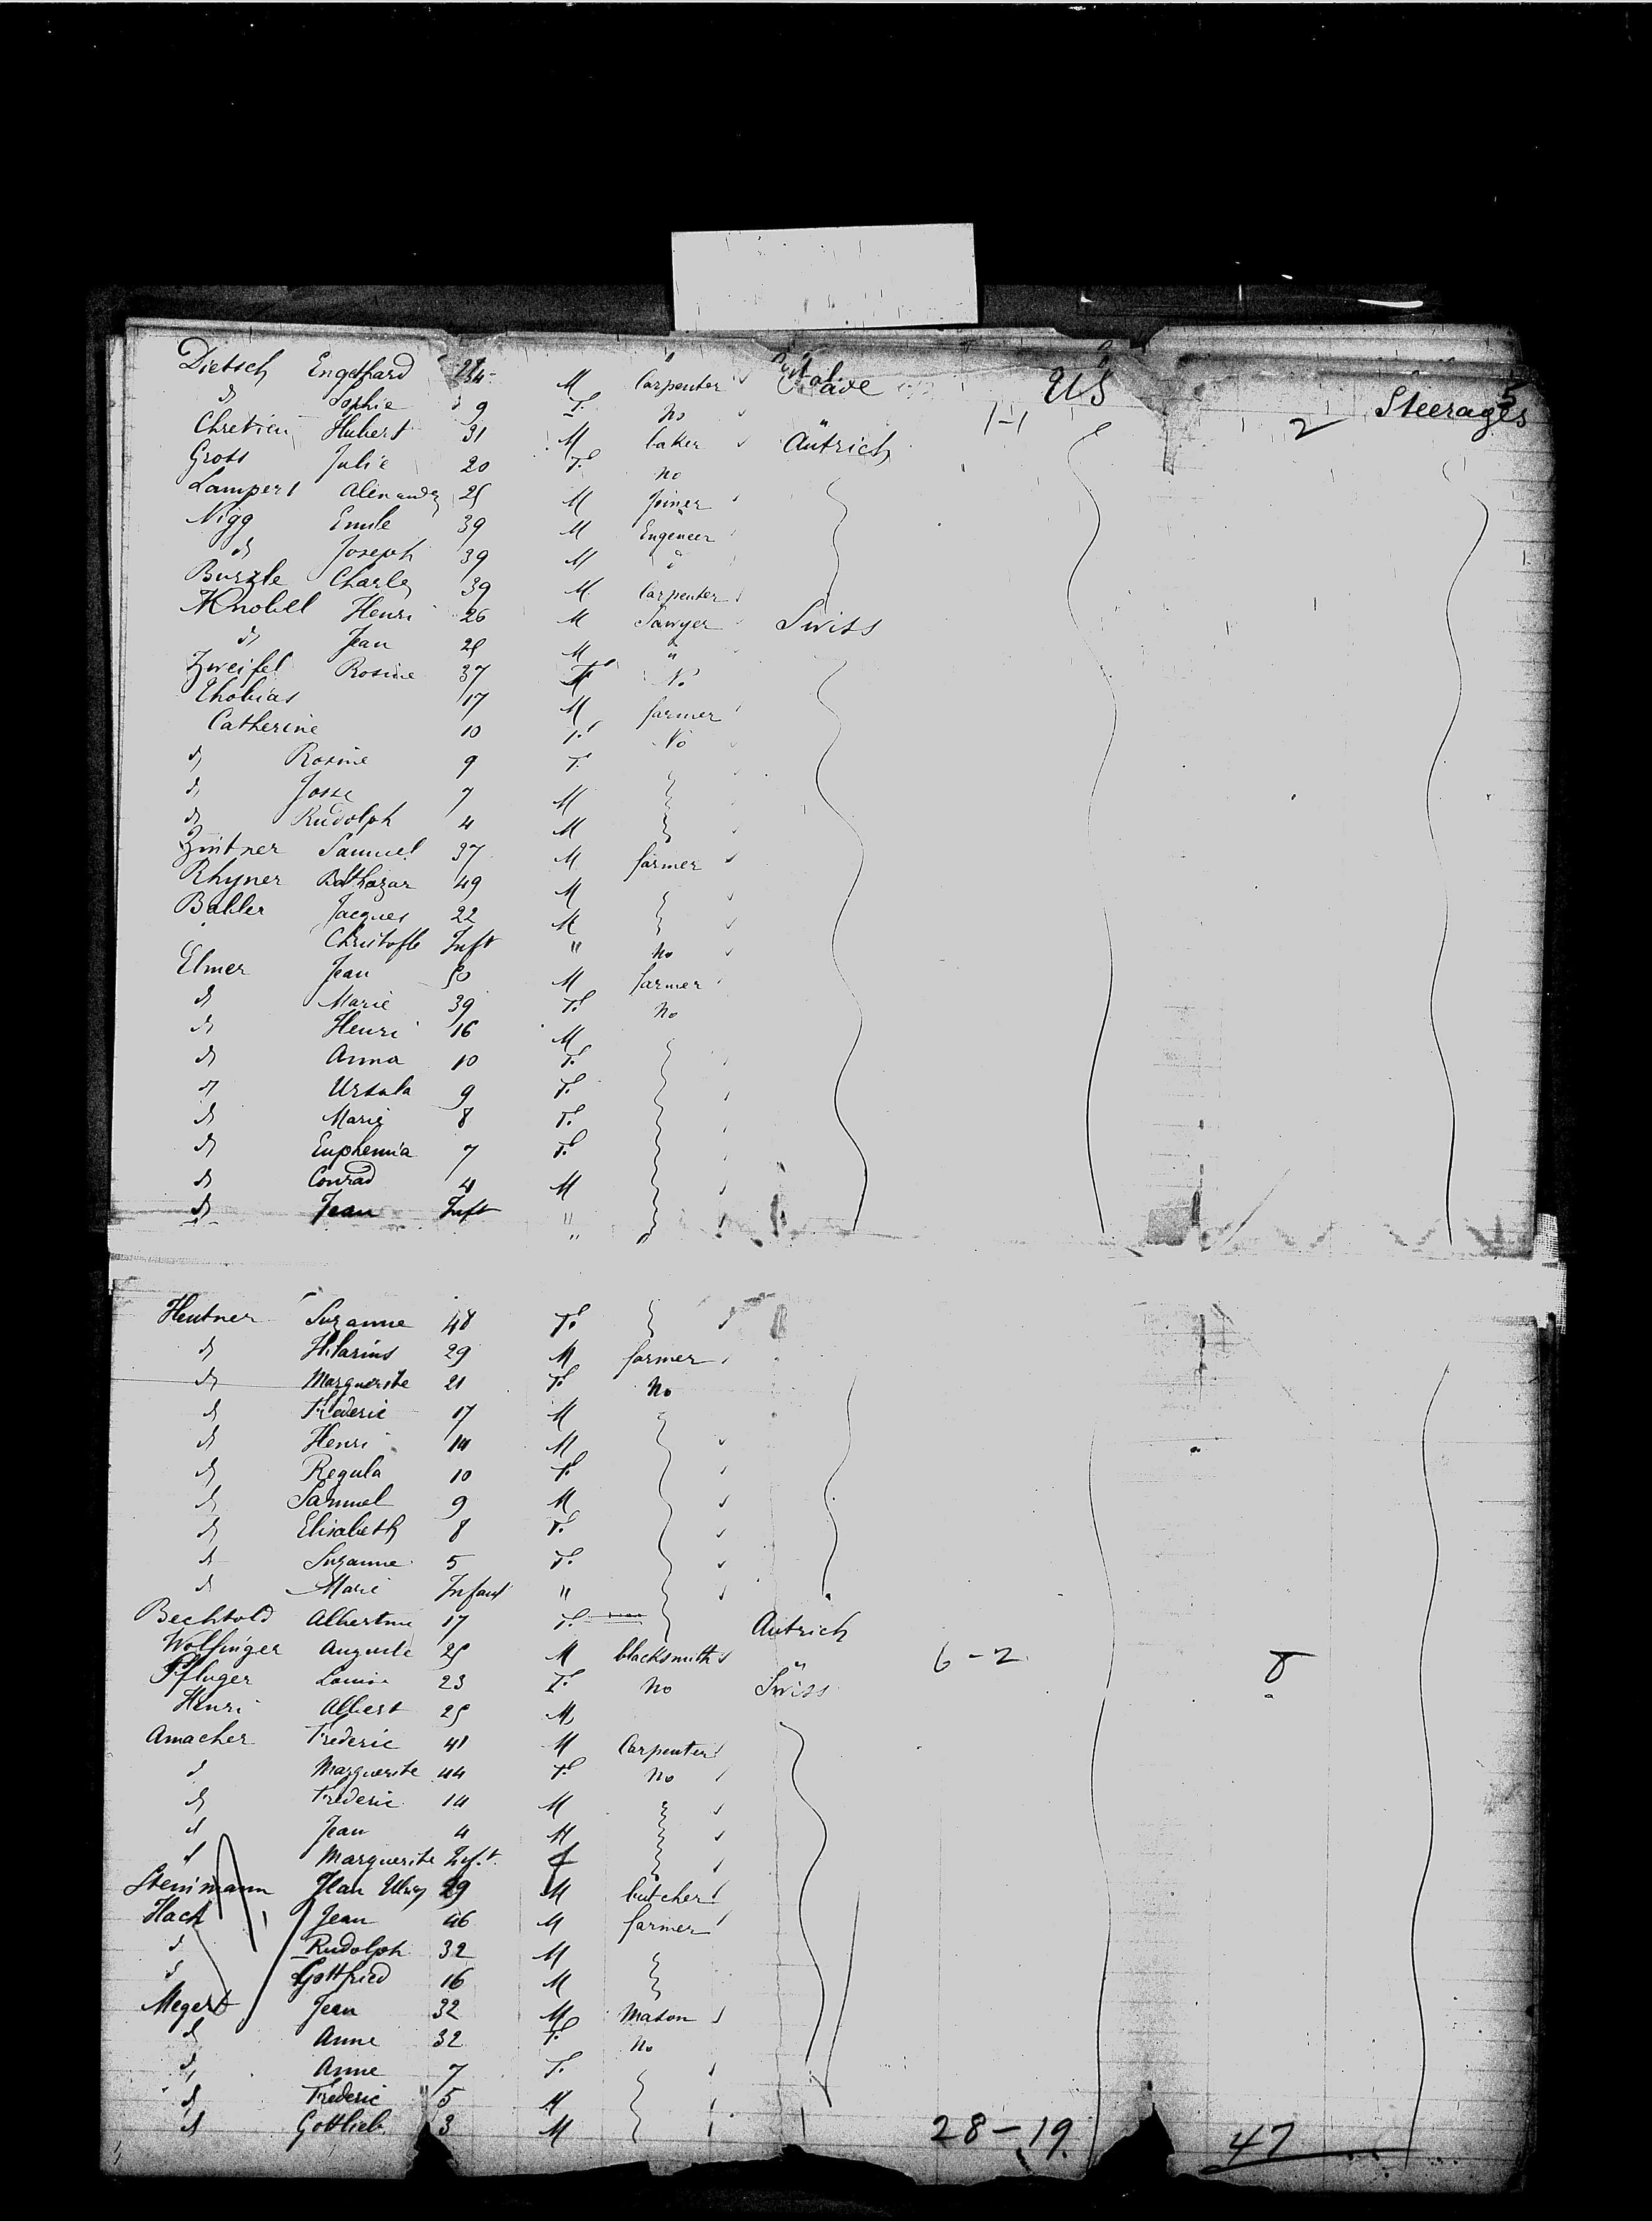 Dietsch Engelhard 24 M Carpenter US Steerages 5
d Sophie 9 F. No 1-1 2
Chretien Hubert 31 M baker Autrich
Gross Julie 20 F. No
Lampert Alexandre 25 M Joiner
Nigg Emile 39 M Engeneer
d Joseph 39 M "
Burzle Charles 39 M Carpenter
Knobel Henri 26 M Sawyer Swiss
d Jean 25 M "
Zweifel Rosine 37 F No
Thobias 17 M farmer
Catherine 10 F. No
d Rosine 9 F.
d Josse 7 M
d Rudolph 4 M
Zintner Samuel 37 M farmer
Rhyner Balthazar 49 M
Babler Jacques 22 M
Christofle Inft " No
Elmer Jean 50 M farmer
d Marie 39 F. No
d Henri 16 M
d Anna 10 F.
d Ursula 9 F.
d Marie 8 F.
d Euphemia 7 F.
d Conrad 4 M
d Jean Inft "
Hentner Suzanne 48 F.
d Hilarius 29 M farmer
d Marguerite 21 F. No
d Frederic 17 M
d Henri 14 M
d Regula 10 F.
d Samuel 9 M
d Elisabeth 8 F.
d Suzanne 5 F.
d Marie Infant "
Bechtold Albertine 17 F. Autrich
Wolfinger Auguste 25 M blacksmith " 6-2 8
Pfluger Louise 23 F. No Swiss
Henri Albert 25 M
Amacher Frederic 41 M Carpenter
d Marguerite 44 F. No
d Frederic 14 M
d Jean 4 M
d Marguerite Inft. f
Steinmann Jean Ulrig 29 M butcher
Hach Jean 46 M farmer
d Rudolph 32 M
d Gottfried 16 M
Megert Jean 32 M Mason
d Anne 32 F. No
d Anne 7 F.
d Frederic 5 M
d Gottlieb 3 M 28-19. 47